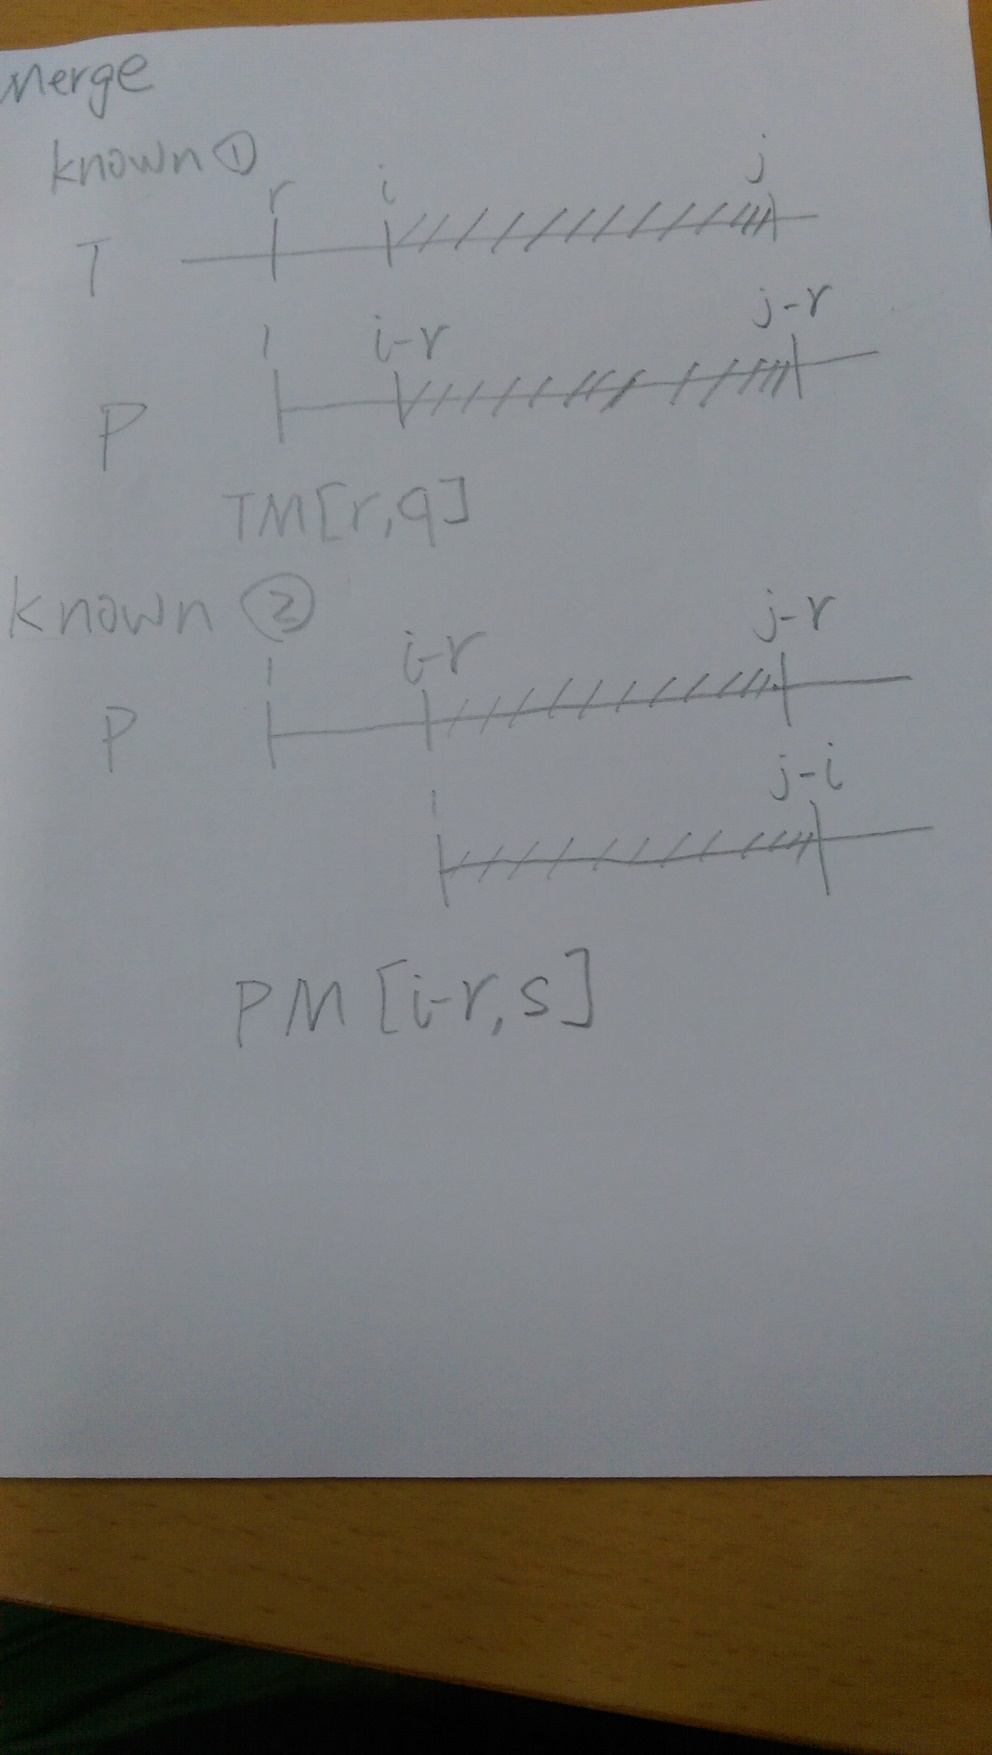 Merge
known ①
r i j
T
1 i-r j-r
P
TM[r,q]
known ②
1 i-r j-r
P
1 j-i
PM[i-r,s]